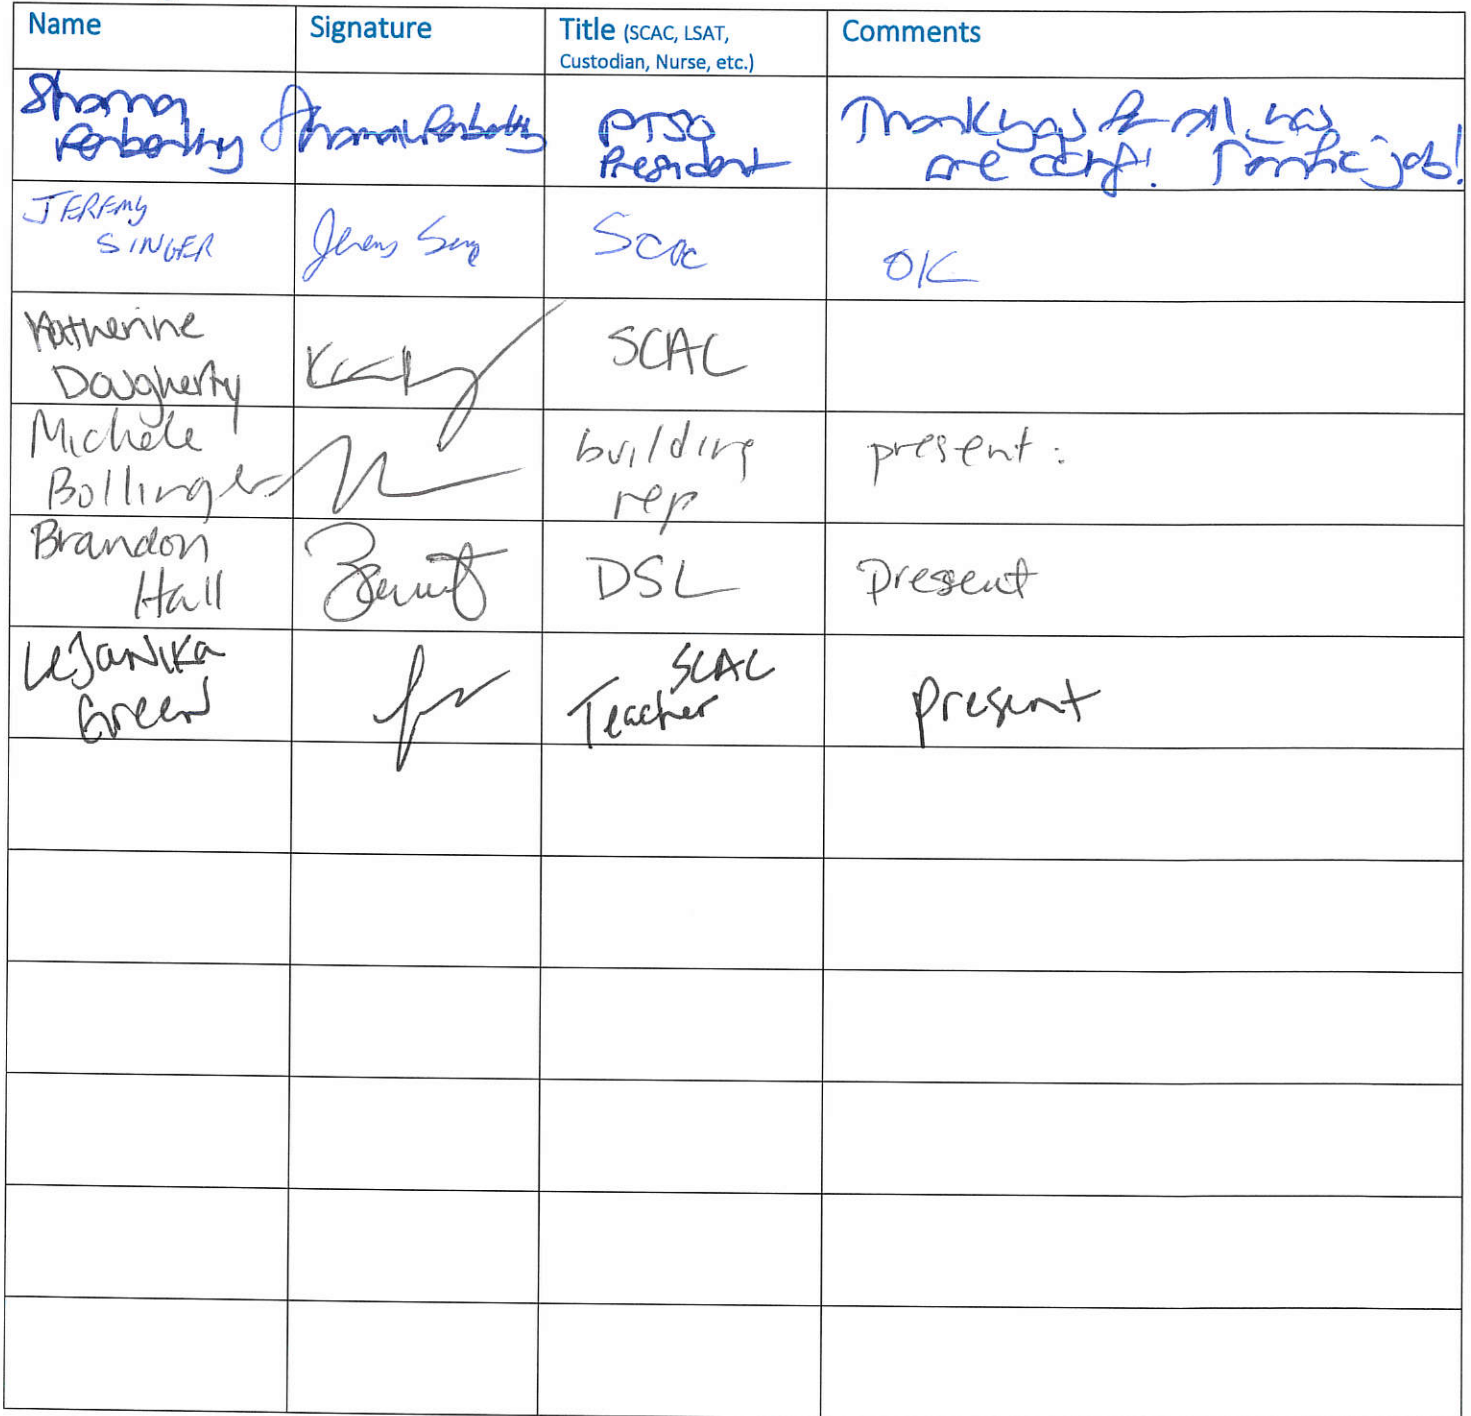 Name
Signature
Title (SCAC, LSAT,
Custodian, Nurse, etc.)
Comments
PTSO
President
Thank you for all
are Terrific job!
JEREMY
SINGER
SCAC
OK
Katherine
Dougherty
SCAC
Michele
Bollinger
building
rep
present.
Brandon
Hall
DSL
Present
LeJaNika
Green
SCAC
Teacher
present